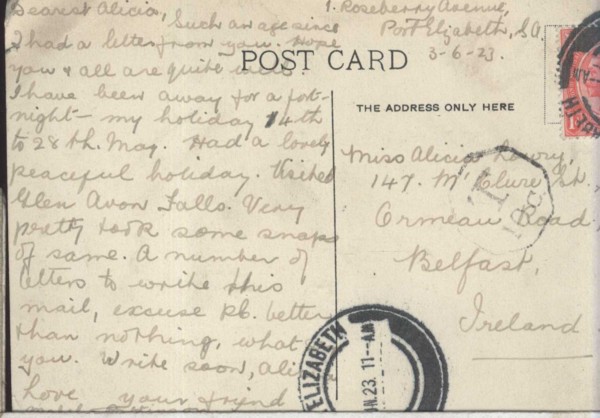 Dearest Alicia,
1. Roseberry Avenue,
Port Elizabeth, S.A.
3-6-23.
Such an age since
I had a letter from you. Hope
you & all are quite well.
I have been away for a fort-
night – my holiday 14th
to 28th. May. Had a lovely
peaceful holiday. Visited
Glen Avon Falls. Very
pretty took some snaps
of same. A number of
letters to write this
mail, excuse P.C. better
than nothing, what
you. Write soon, Alicia
love your friend
POST CARD
THE ADDRESS ONLY HERE
Miss Alicia Lowry,
147. McClure St.
Ormeau Road,
Belfast,
Ireland
T
ELIZABETH
JN.23. 11-AM